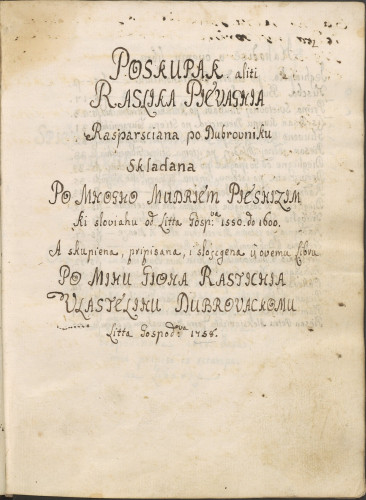 POSKUPAK aliti
RASLIKA PIÈVAGNIA
Rasparsciana po Dubrovniku
Skladana
PO MNOGHO MUDRIÈM PIÈSNIZIM
Ki sloviahu od Litta Gosp:na 1550. do 1600.
A skupiena, pripisana, i slòscgena u ovemu Libru
PO MIHU GIONA RASTICHIA
VLASTÈLINU DUBROVACKOMU
Litta Gospod:va